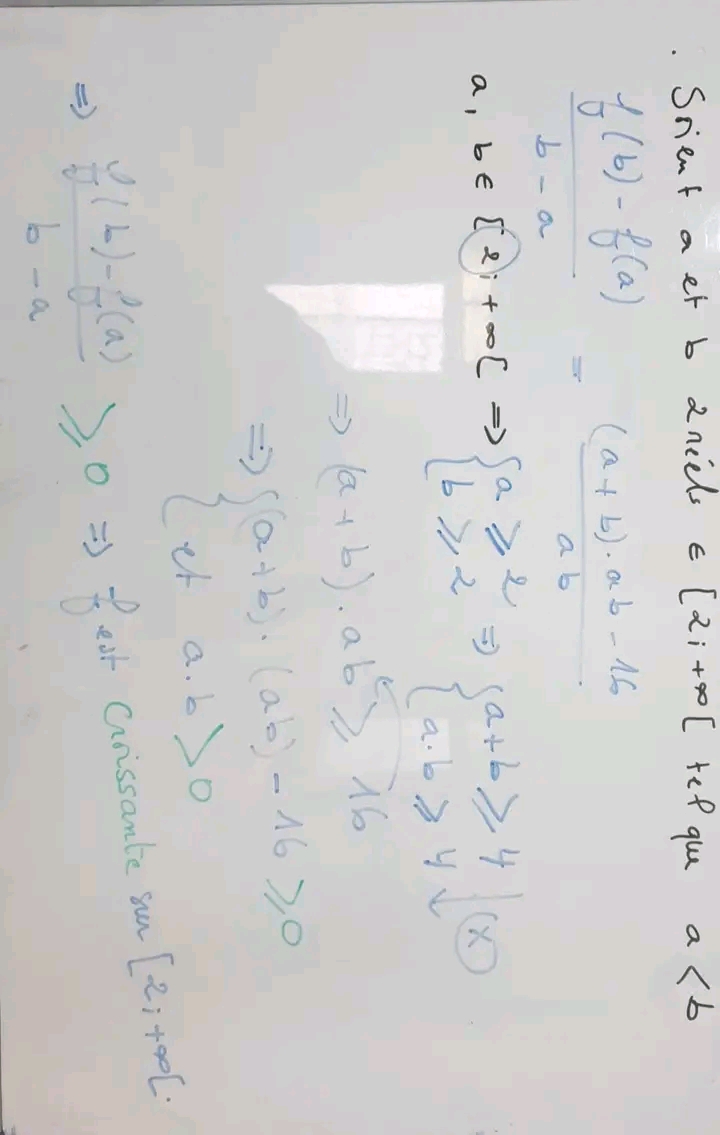 . Soient a et b 2 réels ∈ [2; +∞[ tel que a < b
f(b) - f(a) / b - a = (a + b) . ab - 16 / ab
a, b ∈ [2; +∞[ ⇒ { a ⩾ 2 ⇒ { a + b ⩾ 4
{ b ⩾ 2 { a . b ⩾ 4 ↓ (x)
⇒ (a + b) . ab ⩾ 16
⇒ { (a + b) . (ab) - 16 ⩾ 0
{ et a . b > 0
⇒ f(b) - f(a) / b - a ⩾ 0 ⇒ f est Croissante sur [2; +∞[.